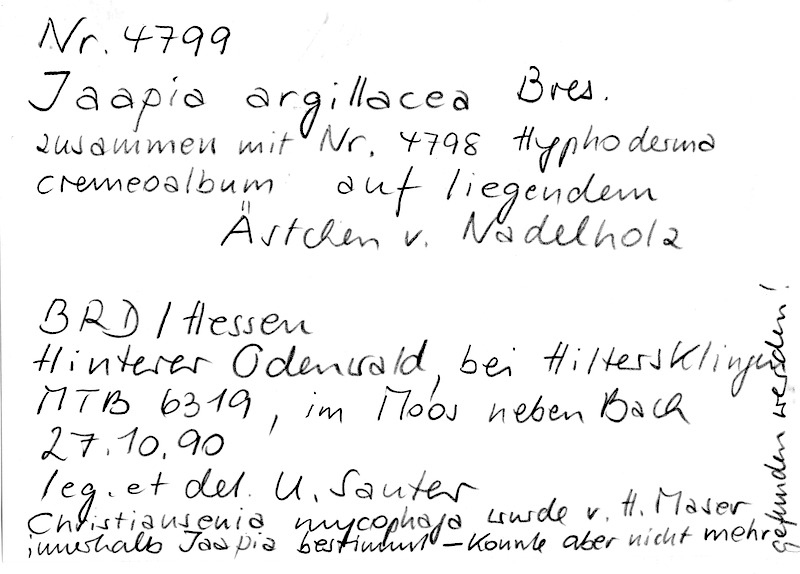 Nr. 4799
Jaapia argillacea Bres.
zusammen mit Nr. 4798 Hyphoderma
cremeoalbum auf liegendem
Ästchen v. Nadelholz
BRD / Hessen
Hinterer Odenwald, bei Hiltersklingen
MTB 6319, im Moos neben Bach
27.10.90
leg. et det. U. Sauter
Christiansenia mycophaga wurde v. H. Maser
innerhalb Jaapia bestimmt – konnte aber nicht mehr
gefunden werden!